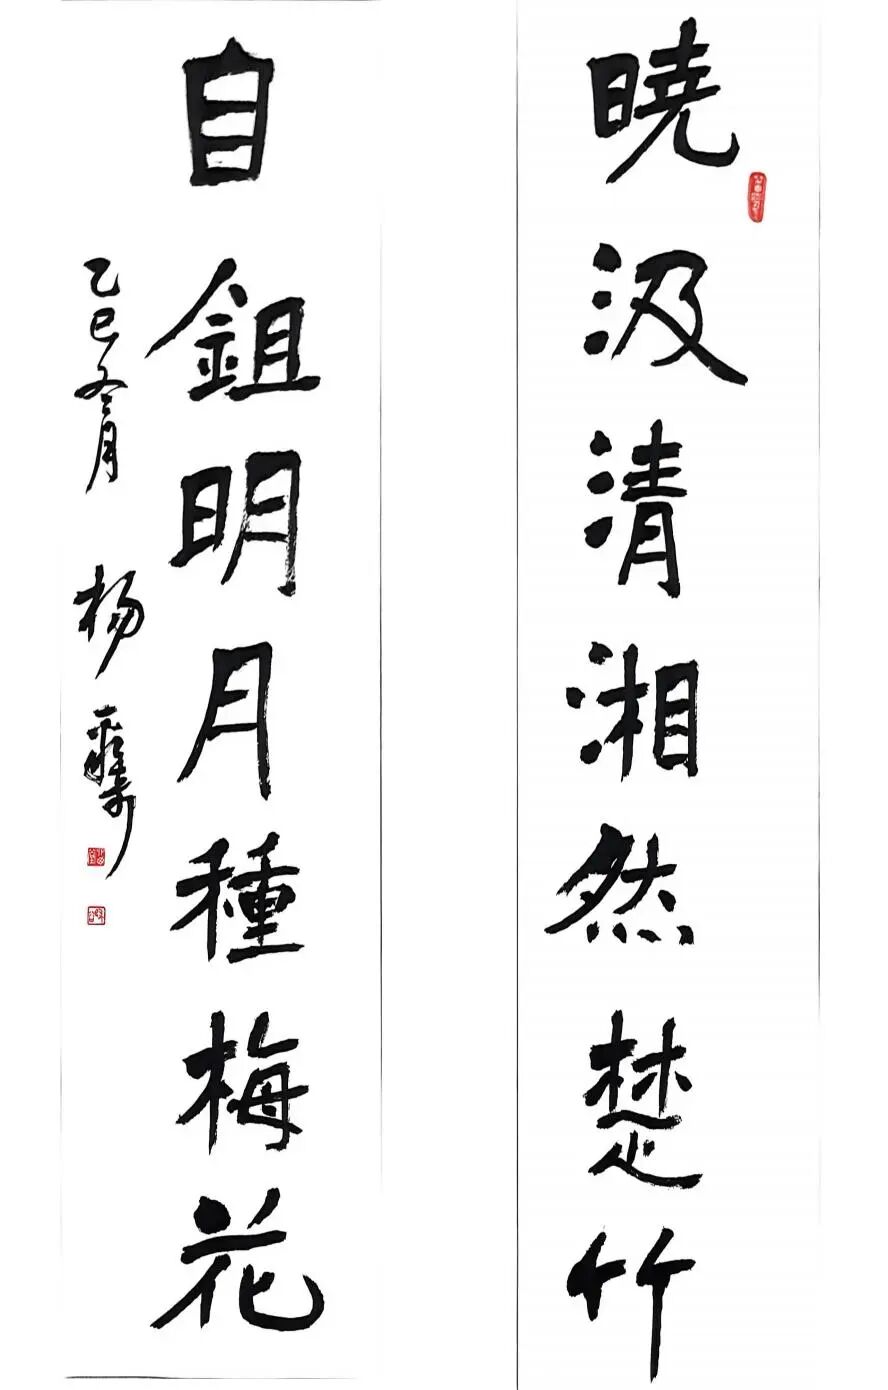 曉汲清湘然楚竹
自鉏明月種梅花
乙巳冬月 杨